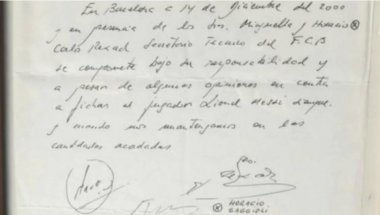 En Barcelona a 14 de Diciembre del 2000
y en presencia de los Sres. Minguella y Horacio ⊗
Carlo Rexach Secretario Técnico del F.C.B
se compromete bajo su responsabilidad y
a pesar de algunas opiniones en contra
a fichar al jugador Lionel Messi siempre
y cuando nos mantengamos en las
cantidades acordadas
⊗ HORACIO
GAGGIOLI